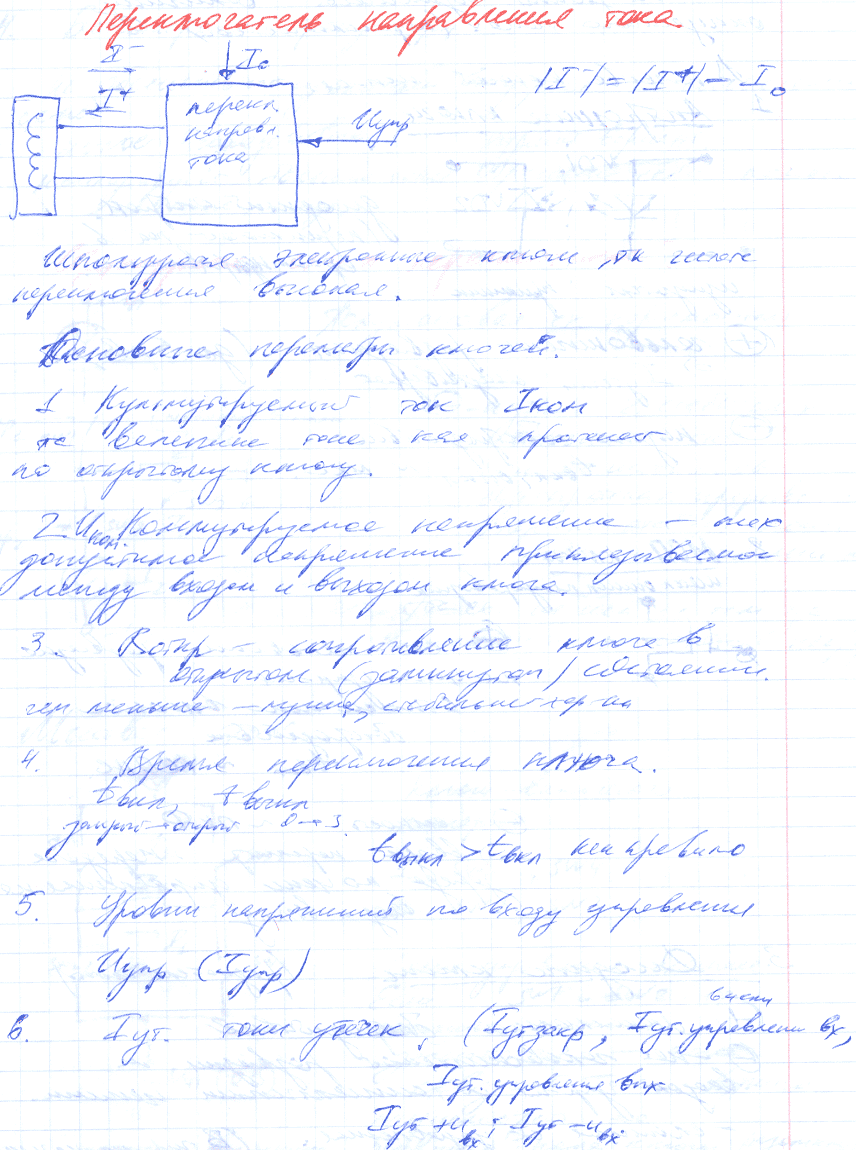 Переключатель направления тока
I⁻
I⁺
I₀
|I⁻| = |I⁺| = I₀
перекл.
направл.
тока
Uупр
Используются электронные ключи, тк частота
переключения высокая.
Основные параметры ключей.
1 Коммутируемый ток Iком
величина тока протекает
по открытому ключу.
2 Uком Коммутируемое напряжение – макс
допустимое напряжение прикладываемое
между входом и выходом ключа.
3. Rоткр – сопротивление ключа в
открытом (замкнутом) состоянии.
чем меньше – лучше, стабильней хар-ки
4. Время переключения ключа.
tвкл, tвыкл
закрыт → открыт О → З
tвыкл > tвкл как правило
5. Уровни напряжений по входу управления
Uупр (Iупр)
6. Iут. токи утечек, (Iут закр, Iут. управления вх,
Iут. управления вых
Iут +uвх; Iут –uвх